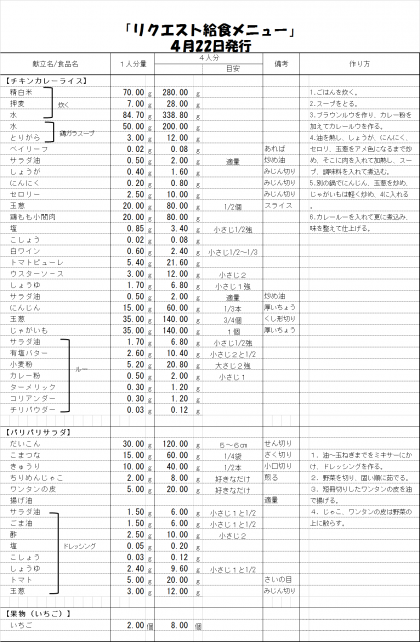 「リクエスト給食メニュー」
4月22日発行
献立名/食品名 1人分量 4人分 目安 備考 作り方
【チキンカレーライス】
精白米 70.00 g 280.00 g 1.ごはんを炊く。
押麦 炊く 7.00 g 28.00 g 2.スープをとる。
水 84.70 g 338.80 g 3.ブラウンルウを作り、カレー粉を
水 鶏ガラスープ 50.00 g 200.00 g 加えてカレールウを作る。
とりがら 3.00 g 12.00 g 4.油を熱し、しょうが、にんにく、
ベイリーフ 0.02 g 0.08 g あれば セロリ、玉葱をアメ色になるまで炒
サラダ油 0.50 g 2.00 g 適量 炒め油 め、そこに肉を入れて加熱し、スー
しょうが 0.40 g 1.60 g みじん切り プ、調味料を入れて煮込む。
にんにく 0.20 g 0.80 g みじん切り 5.別の鍋でにんじん、玉葱を炒め、
セロリー 2.50 g 10.00 g みじん切り じゃがいもは軽く炒め、4に入れる
玉葱 20.00 g 80.00 g 1/2個 スライス 。
鶏もも小間肉 20.00 g 80.00 g 6.カレールーを入れて更に煮込み、
塩 0.85 g 3.40 g 小さじ1/2強 味を整えて仕上げる。
こしょう 0.02 g 0.08 g
白ワイン 0.60 g 2.40 g 小さじ1/2~1/3
トマトピューレ 5.40 g 21.60 g
ウスターソース 3.00 g 12.00 g 小さじ2
しょうゆ 1.70 g 6.80 g 小さじ1強
サラダ油 0.50 g 2.00 g 適量 炒め油
にんじん 15.00 g 60.00 g 1/3本 厚いちょう
玉葱 35.00 g 140.00 g 3/4個 くし形切り
じゃがいも 35.00 g 140.00 g 1個 厚いちょう
サラダ油 1.70 g 6.80 g 小さじ1/2強
有塩バター 2.60 g 10.40 g 小さじ2と1/2
小麦粉 ルー 5.20 g 20.80 g 大さじ2強
カレー粉 0.50 g 2.00 g 小さじ1
ターメリック 0.30 g 1.20 g
コリアンダー 0.30 g 1.20 g
チリパウダー 0.03 g 0.12 g
【パリパリサラダ】
だいこん 30.00 g 120.00 g 6~6㎝ せん切り
こまつな 15.00 g 60.00 g 1/4袋 ざく切り 1.油~玉ねぎまでをミキサーにか
きゅうり 10.00 g 40.00 g 1/2本 小口切り け、ドレッシングを作る。
ちりめんじゃこ 2.00 g 8.00 g 好きなだけ 煎る 2.野菜を切り、固い順に茹でる。
ワンタンの皮 5.00 g 20.00 g 好きなだけ 3.短冊切りしたワンタンの皮を油
揚げ油 適量 で揚げる。
サラダ油 1.50 g 6.00 g 小さじ1と1/2 4.じゃこ、ワンタンの皮は野菜の
ごま油 1.50 g 6.00 g 小さじ1と1/2 上に散らす。
酢 2.50 g 10.00 g 小さじ2
塩 ドレッシング 0.05 g 0.20 g
こしょう 0.03 g 0.12 g
しょうゆ 2.40 g 9.60 g 小さじ1と1/2
トマト 5.00 g 20.00 g さいの目
玉葱 3.00 g 12.00 g みじん切り
【果物(いちご)】
いちご 2.00 個 8.00 個